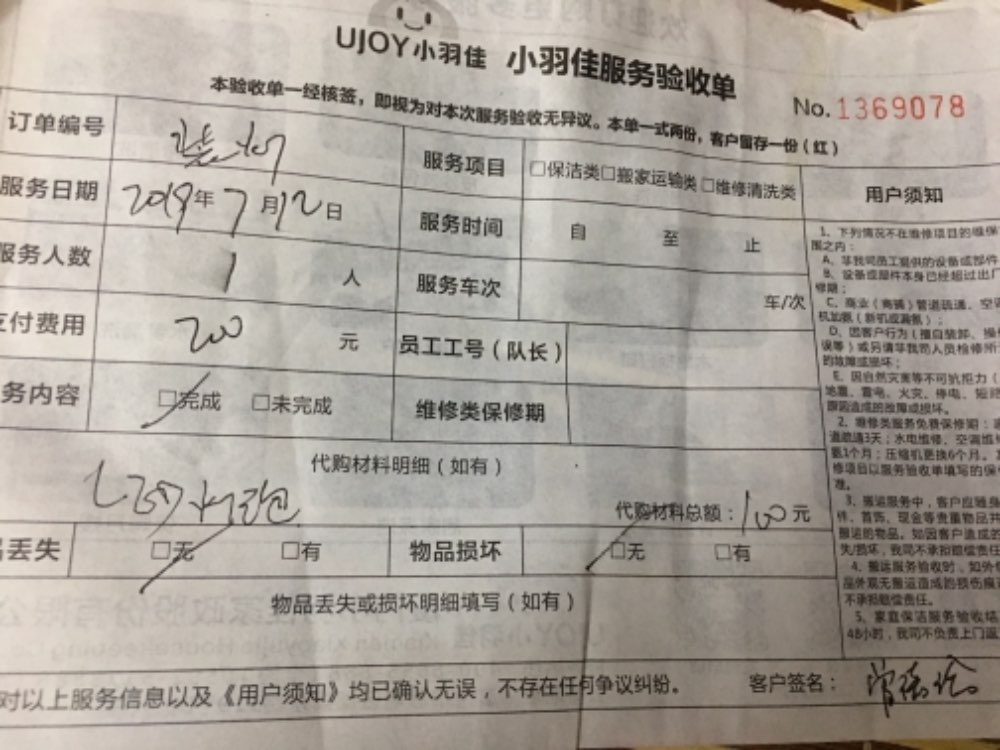 UJOY小羽佳 小羽佳服务验收单
No.1369078
本验收单一经核签，即视为对本次服务验收无异议。本单一式两份，客户留存一份（红）
订单编号 装灯 服务项目 □保洁类□搬家运输类□维修清洗类 用户须知
服务日期 2019年7月12日 服务时间 自 至 止
服务人数 1 人 服务车次 车/次
支付费用 200 元 员工工号（队长）
务内容 □完成 □未完成 维修类保修期
代购材料明细（如有）
LED灯泡 代购材料总额：100元
丢失 □无 □有 物品损坏 □无 □有
物品丢失或损坏明细填写（如有）
对以上服务信息以及《用户须知》均已确认无误，不存在任何争议纠纷。 客户签名：
1、下列情况不在维修项目的维保
围之内：
A、非我司员工提供的设备或部件
B、设备或部件本身已经超过出厂
修期；
C、商业（商铺）管道疏通、空调
机加氟（新机或漏氟）；
D、因客户行为（擅自装卸、操
误等）或另请非我司人员检修所
的故障或损坏；
E、因自然灾害等不可抗拒力（
地震、雷电、火灾、停电、短路
原因造成的故障或损坏。
2、维修类服务免费保修期：
道疏通3天；水电维修、空调维
氟1个月；压缩机更换6个月。
修项目以服务验收单填写的保
准。
3、搬运服务中，客户应随身
件、首饰、现金等贵重物品并
搬运的物品。如因客户造成的
失/损坏，我司不承担赔偿责任
4、搬运服务验收时，如外
品外观无搬运造成的损伤痕
不承担赔偿责任。
5、家庭保洁服务验收结
48小时，我司不负责上门返